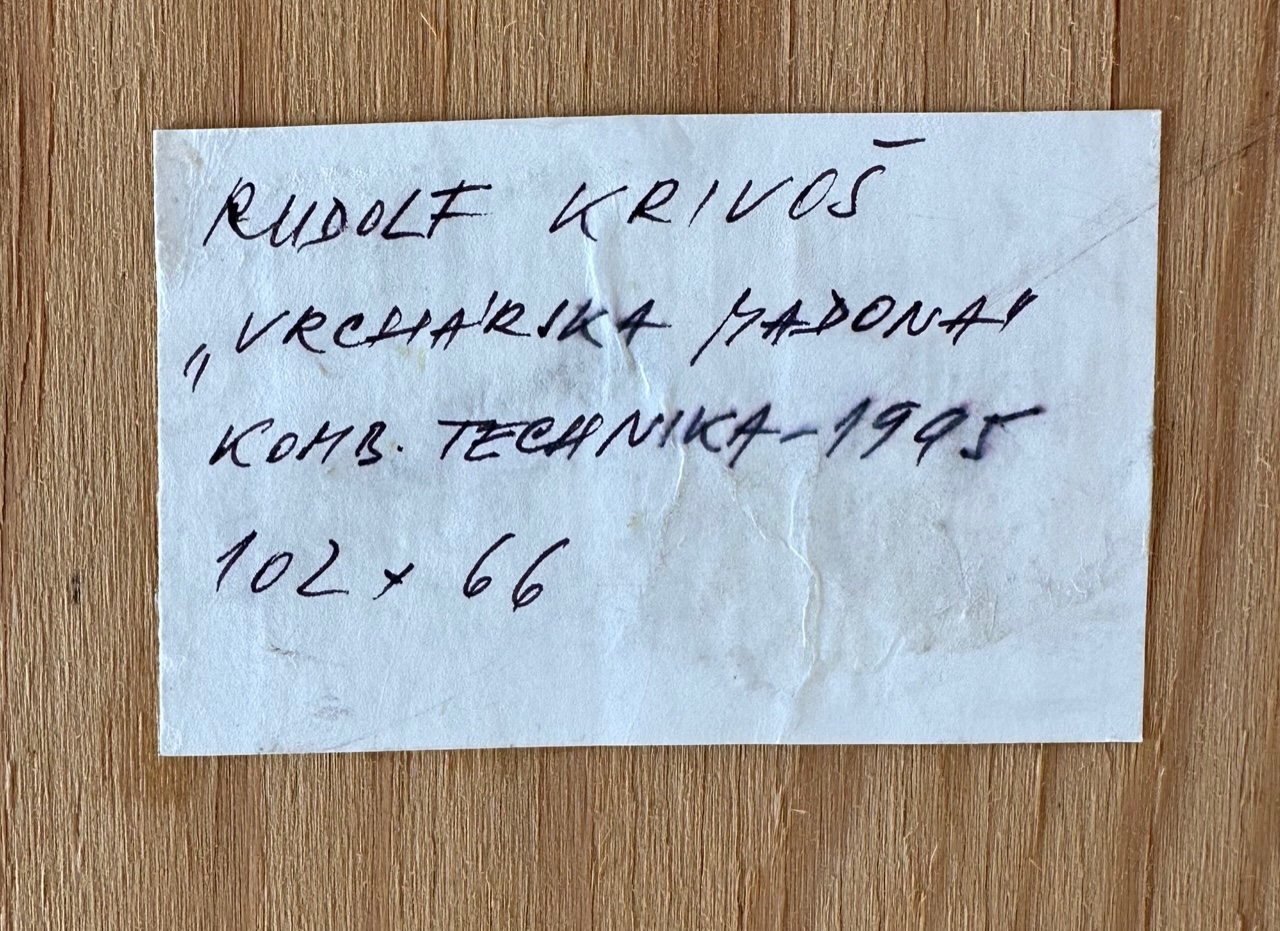 RUDOLF KRIVOŠ
„VRCHÁRSKA MADONA"
KOMB. TECHNIKA - 1995
102 x 66